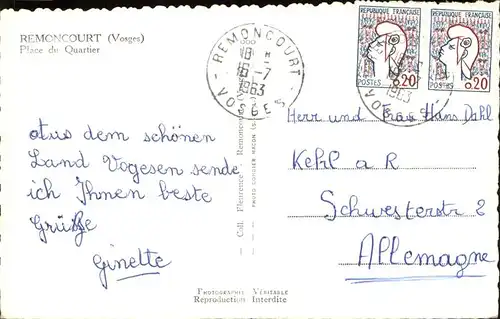 REMONCOURT (Vosges)
Place du Quartier
REMONCOURT
18 H
16-7
1963
VOSGES
REPUBLIQUE FRANÇAISE
POSTES 0.20
REPUBLIQUE FRANÇAISE
POSTES 0.20
1963
Aus dem schönen
Land Vogesen sende
ich Ihnen beste
Grüße
Ginette
Coll. Fleurence - Remoncourt
Herr und Frau Hans Dahl
Kehl a R
Schwesterstr 2
Allemagne
PHOTOGRAPHIE VÉRITABLE
Reproduction Interdite